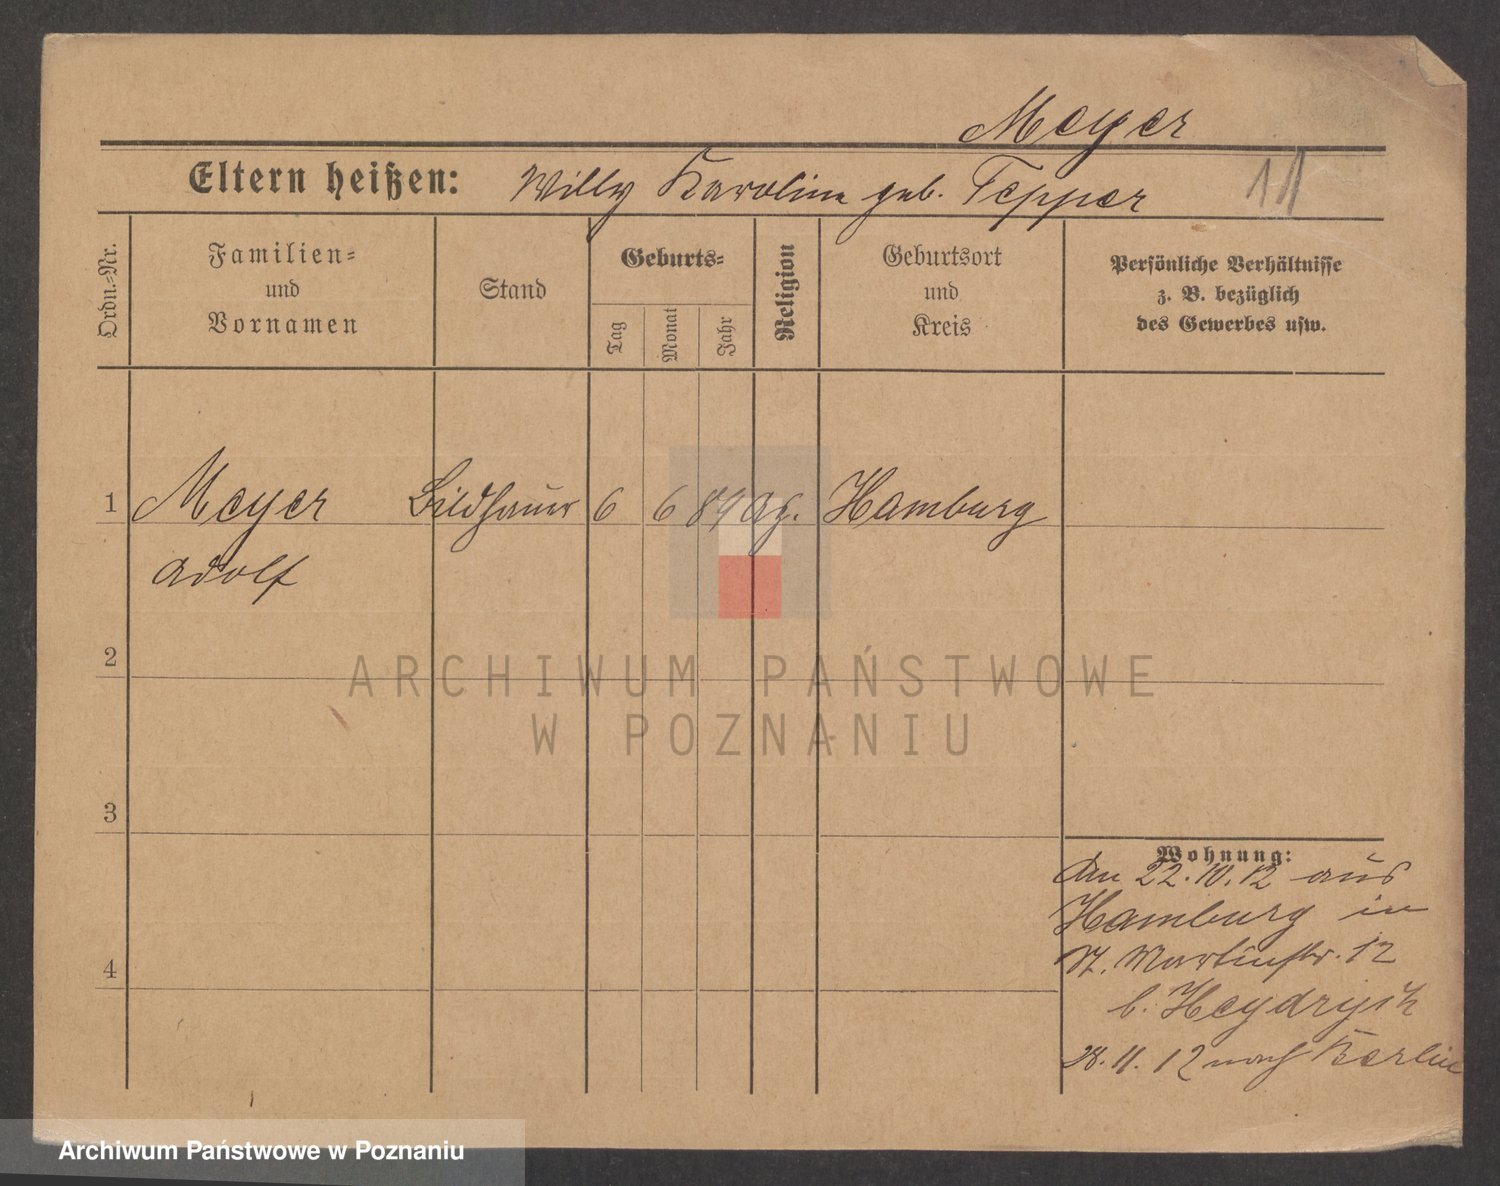 Meyer
Eltern heißen: Willy Karoline geb. Tepper
11
Ordn.-Nr.
Familien-
und
Vornamen
Stand
Geburts-
Tag
Monat
Jahr
Religion
Geburtsort
und
Kreis
Persönliche Verhältnisse
z. B. bezüglich
des Gewerbes usw.
1 Meyer Bildhauer 6 6 89 Hamburg
Adolf
2
ARCHIWUM PAŃSTWOWE
W POZNANIU
3
Wohnung:
Am 22.10.12 aus
Hamburg in
St. Martinstr. 12
b. Heydrych
28.11.12 nach Berlin
4
Archiwum Państwowe w Poznaniu